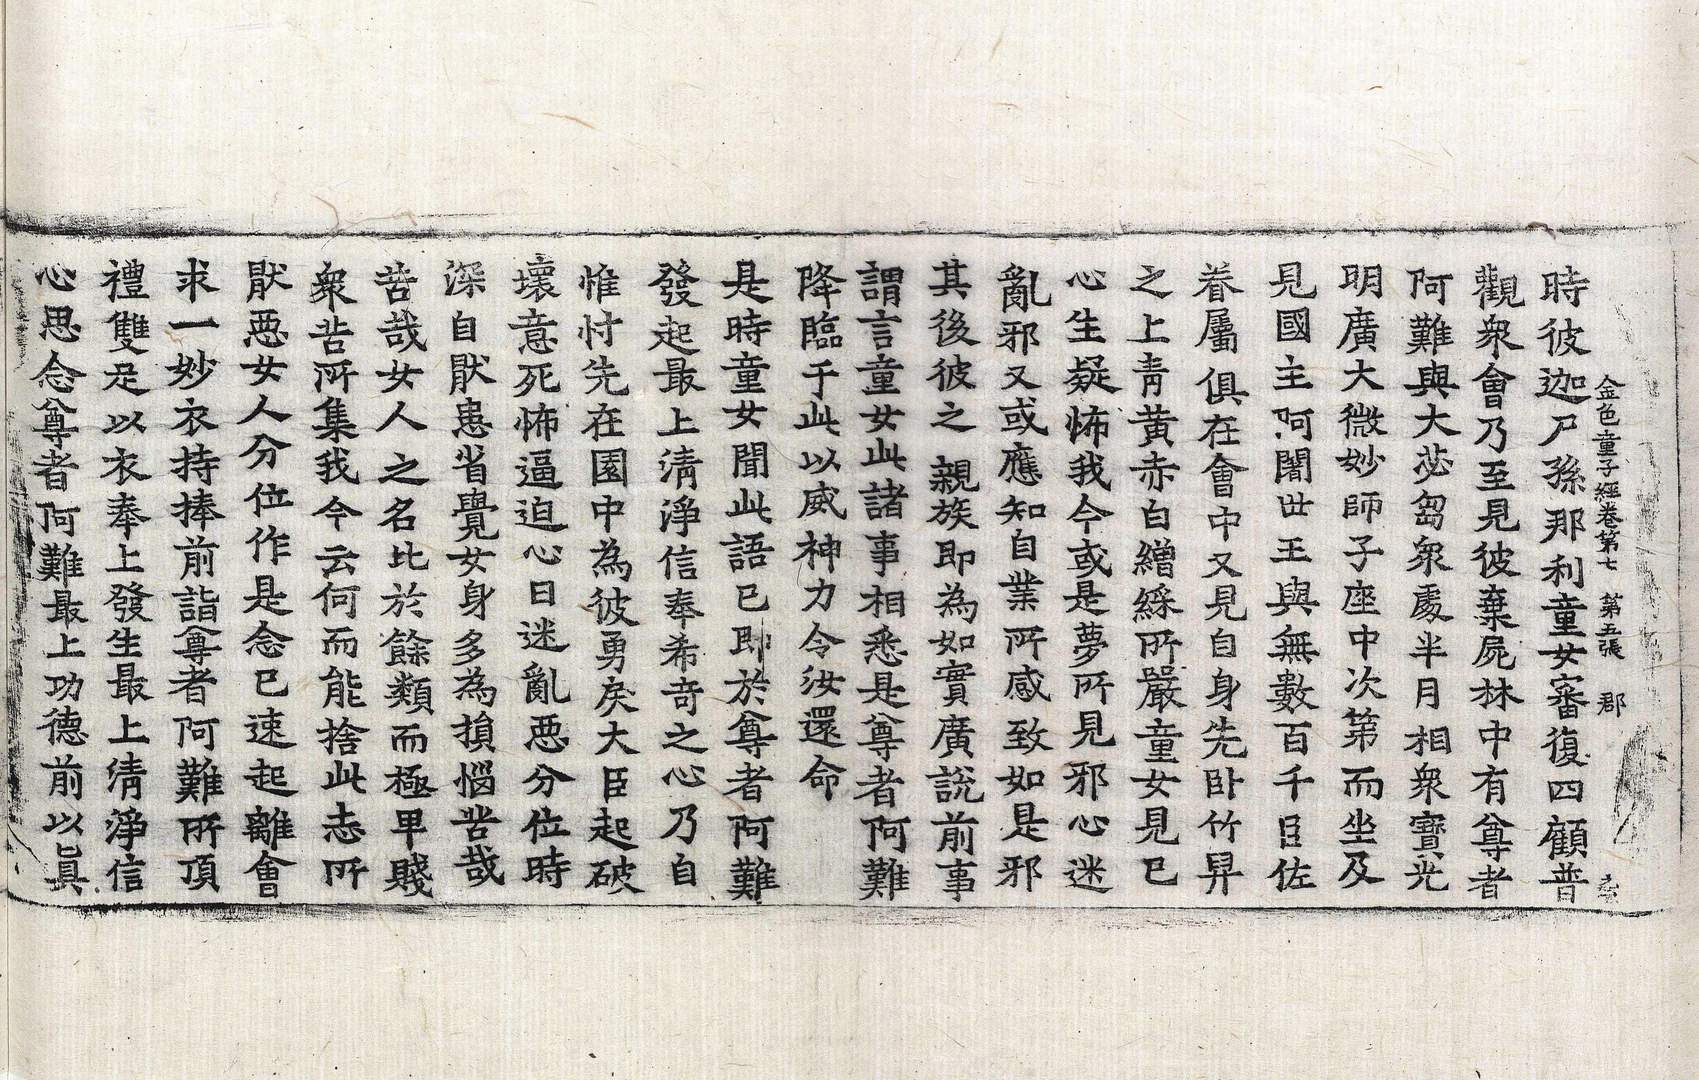 金色童子經卷第七 第五張 郡
時彼迦尸孫那利童女審復四顧普
觀衆會乃至見彼棄屍林中有尊者
阿難與大苾芻衆處半月相衆寶光
明廣大微妙師子座中次第而坐及
見國主阿闍世王與無數百千臣佐
眷屬俱在會中又見自身先臥竹昇
之上青黃赤白繒綵所嚴童女見已
心生疑怖我今或是夢所見邪心迷
亂邪又或應知自業所感致如是邪
其後彼之親族即為如實廣說前事
謂言童女此諸事相悉是尊者阿難
降臨于此以威神力令汝還命
是時童女聞此語已即於尊者阿難
發起最上清淨信奉希竒之心乃自
惟忖先在園中為彼勇戾大臣起破
壞意死怖逼迫心日迷亂惡分位時
深自猒患省覺女身多為損惱苦哉
苦哉女人之名比於餘類而極卑賤
衆苦所集我今云何而能捨此志所
猒惡女人分位作是念已速起離會
求一妙衣持捧前詣尊者阿難所頂
禮雙足以衣奉上發生最上清淨信
心思念尊者阿難最上功德前以眞